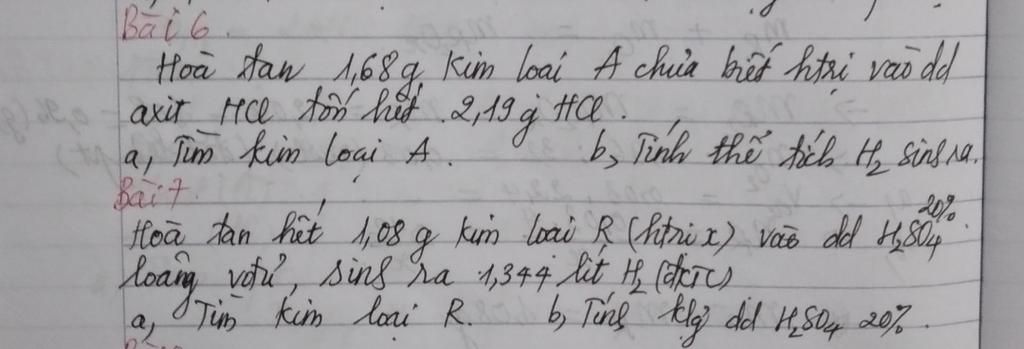 Bài 6.
Hoà tan 1,68g kim loại A chưa biết htrị vào dd
axit HCl tốn hết 2,19g HCl.
a, Tìm kim loại A. b, Tính thể tích H2 sinh ra.
Bài 7.
Hoà tan hết 1,08 g kim loại R (htrị x) vào dd H2SO4 20%
loãng vđủ, sinh ra 1,344 lít H2 (đktc)
a, Tìm kim loại R. b, Tính klg dd H2SO4 20%.